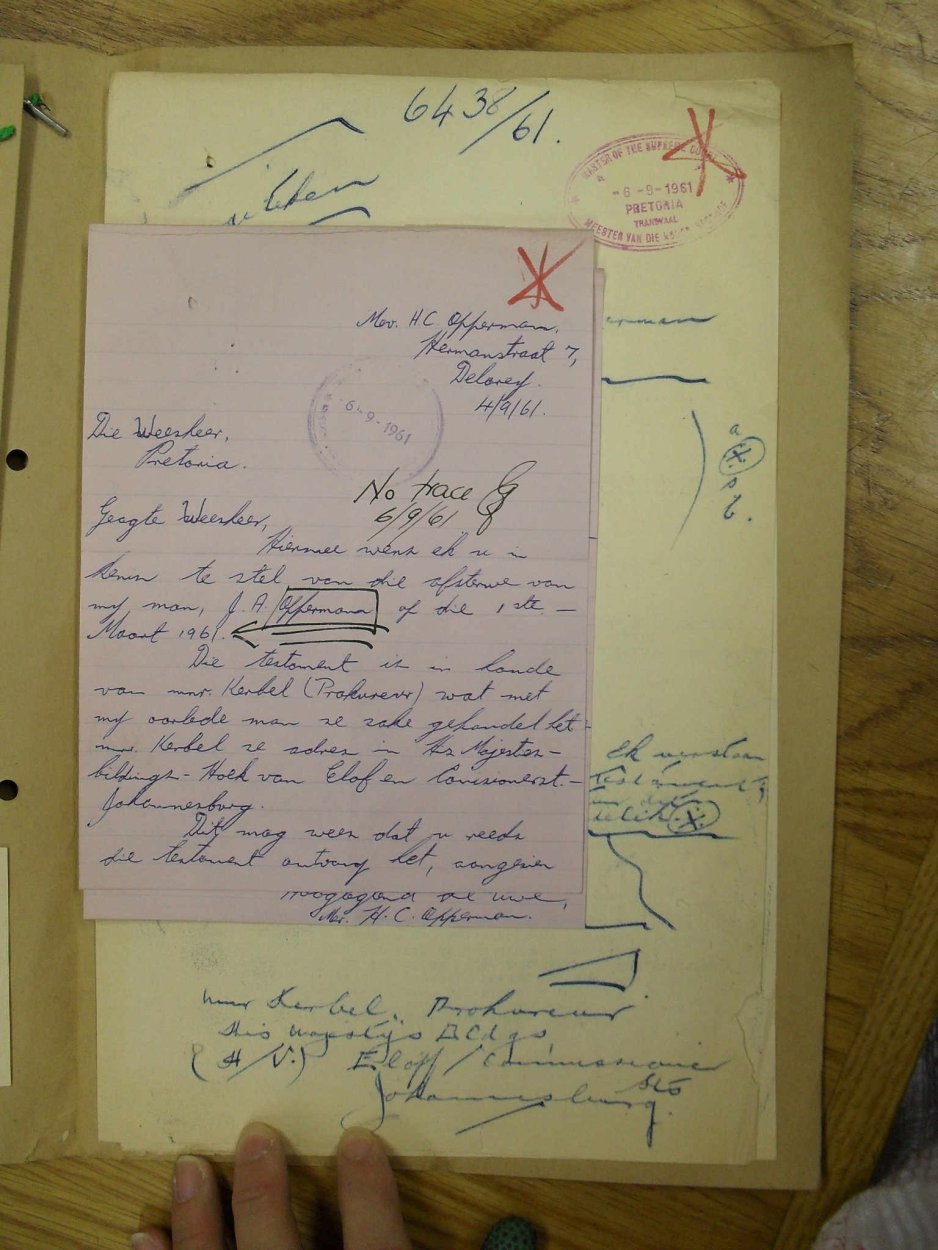 6438/61.
MASTER OF THE SUPREME COURT
-6-9-1961
PRETORIA
TRANSVAAL
MEESTER VAN DIE
Mev. H.C. Opperman,
Hermanstraat 7,
Delarey.
4/9/61.
6-9-1961
Die Weesheer,
Pretoria.
No trace
6/9/61
Geagte Weesheer,
Hiermee wens ek u in
kennis te stel van die afsterwe van
my man, J. A. Opperman op die 1ste
Maart 1961.
Die testament is in hande
van mnr. Kerbel (Prokureur) wat met
my oorlede man se sake gehandel het -
mnr. Kerbel se adres is His Majestes-
bildings - Hoek van Elof en Comisionerst. -
Johannesburg.
Dit mag wees dat u reeds
die testament ontvang het, aangesien
Hoogagtend die uwe,
Mev. H. C. Opperman.
Ek verstaan
mnr Kerbel, Prokureur
His Majestys Bldgs
(H/V.) Eloff / Commissioner
Sts
Johannesburg.